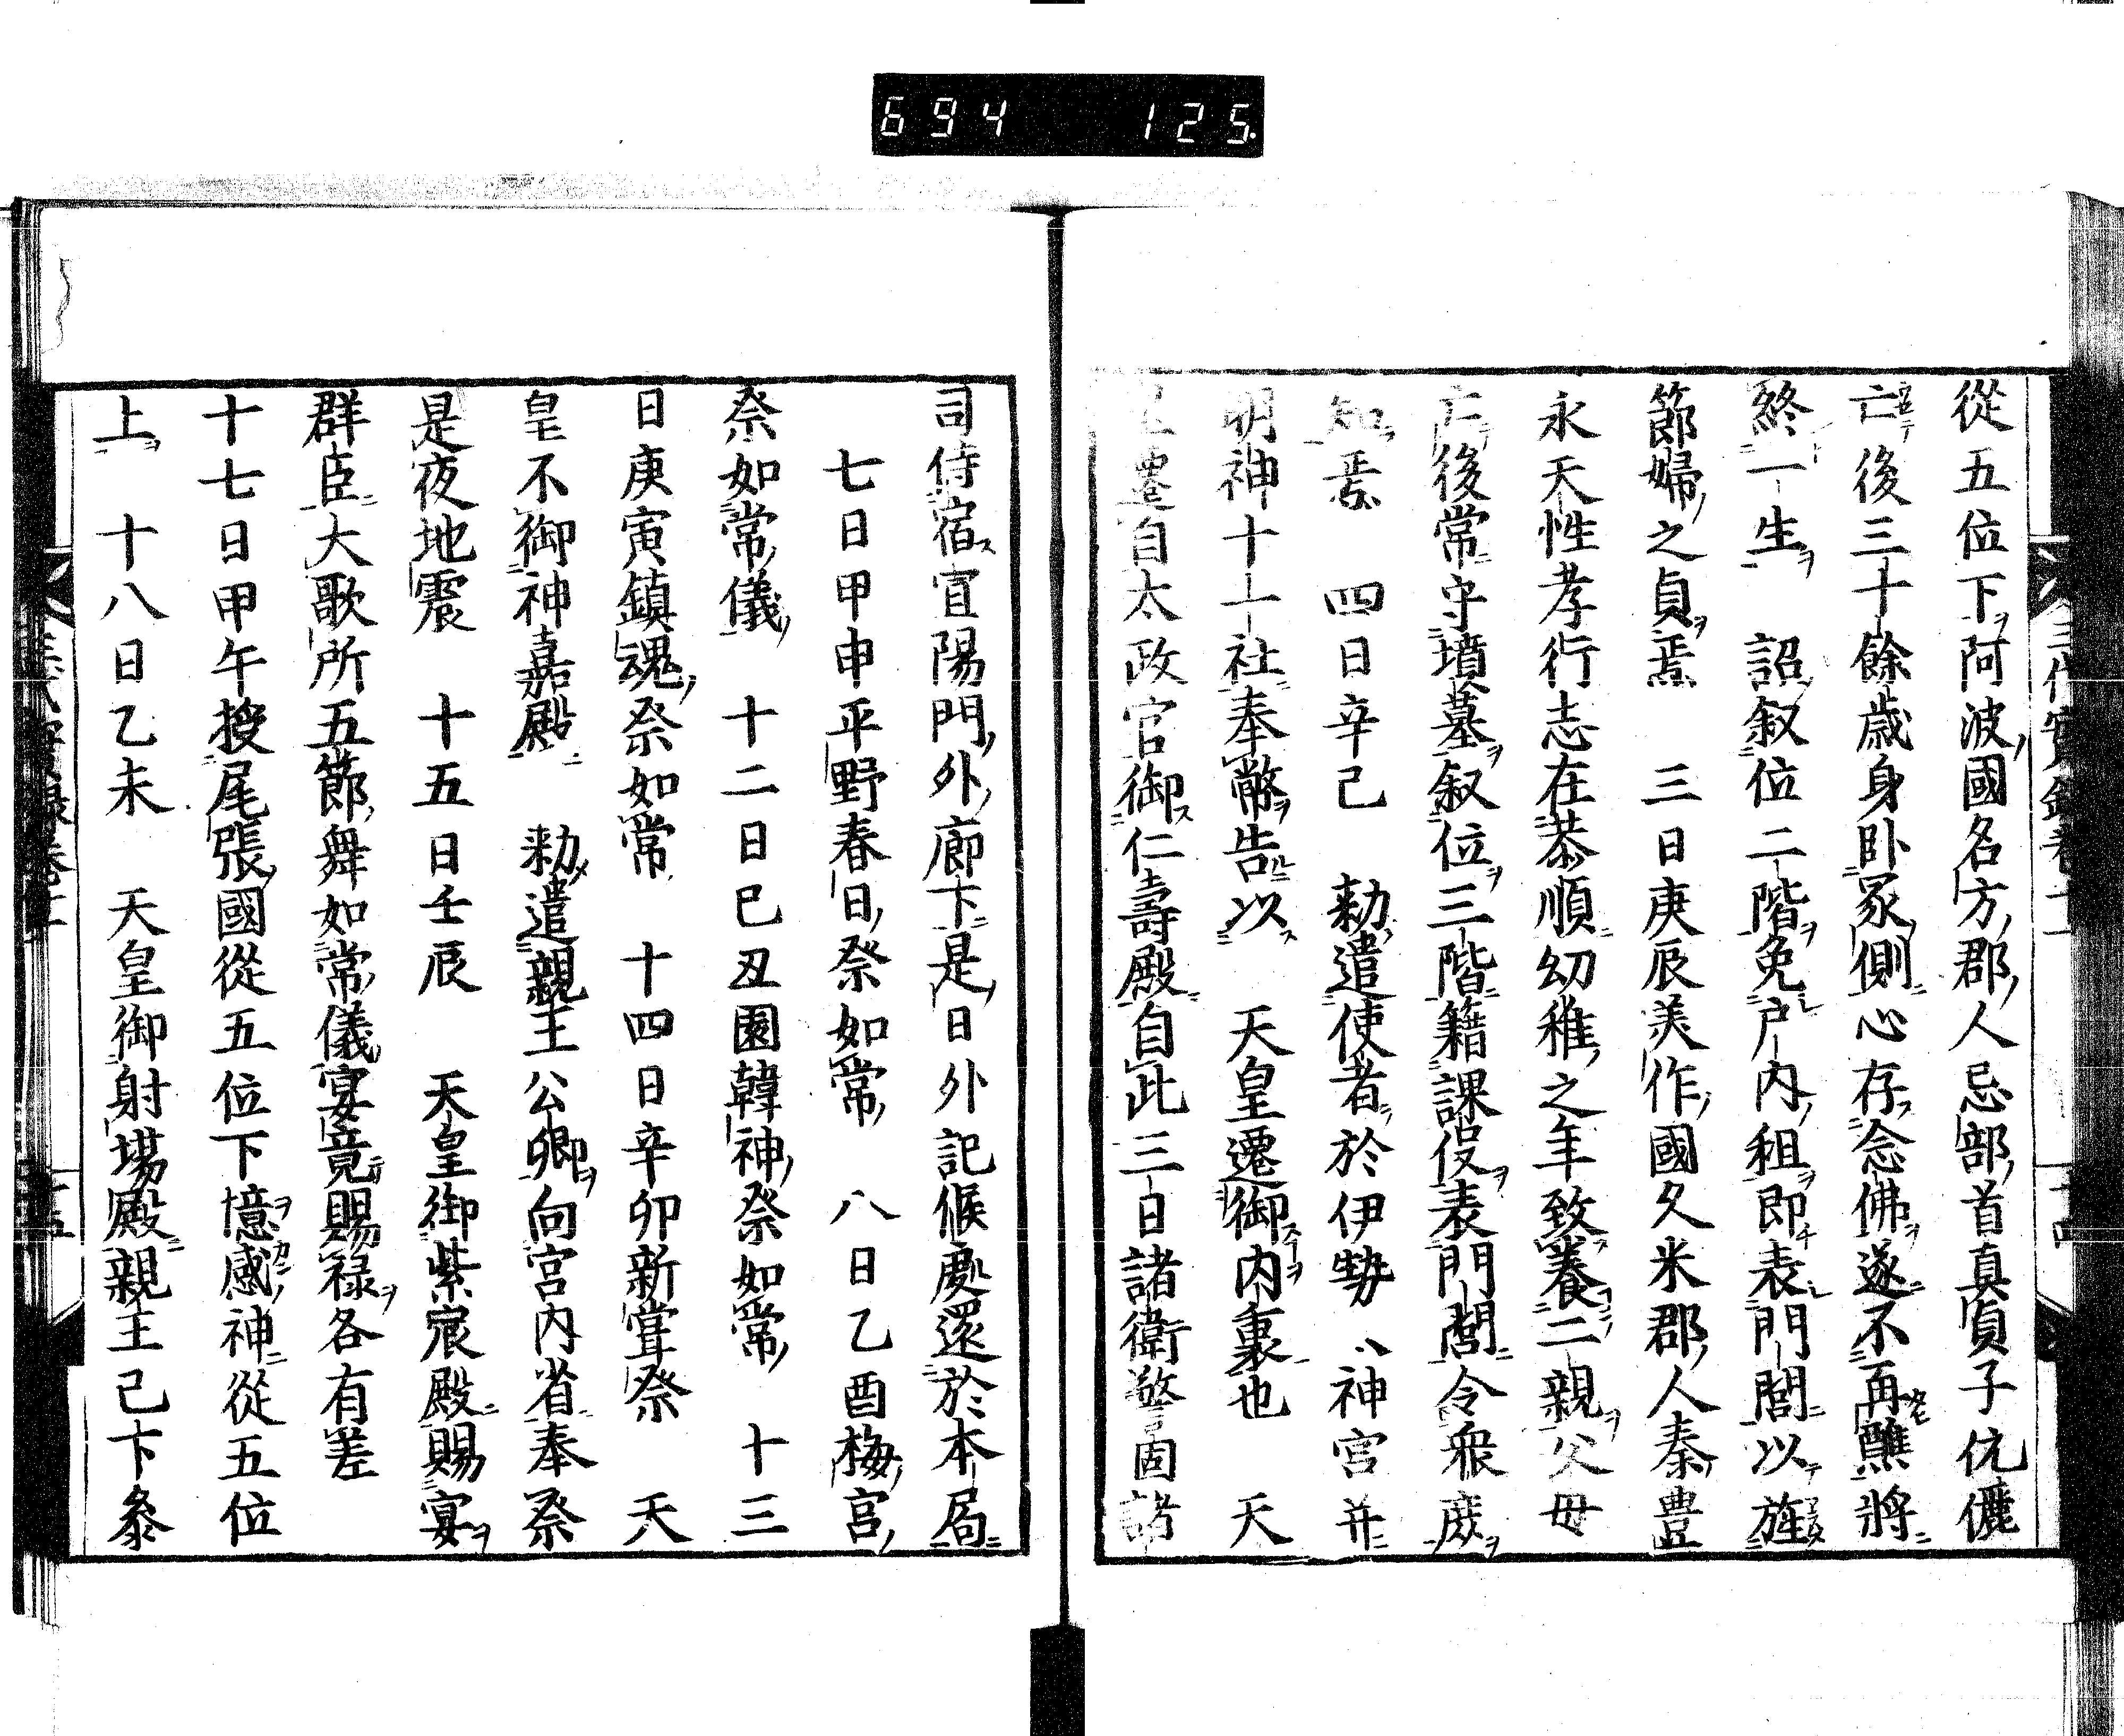 694 125
從五位下阿波國名方郡人忌部首真貞子伉儷
亡後三十餘歳身卧冢側心存念佛遂不再醮將
終一生 詔叙位二階免户内租即表門閭以旌
節婦之貞焉 三日庚辰美作國久米郡人秦豊
永天性孝行志在恭順幼稚之年致養二親父母
亡後常守墳墓叙位三階籍課役表門閭令衆庶
知焉 四日辛己 勅遣使者於伊勢〻神宮并
明神十一社奉幣告以 天皇遷御内裏也 天
遷自太政官御仁壽殿自此三日諸衛警固諸
司侍宿宜陽門外廊下是日外記候處還於本局
七日甲申平野春日祭如常 八日乙酉梅宮
祭如常儀 十二日己丑園韓神祭如常 十三
日庚寅鎮魂祭如常 十四日辛卯新甞祭 天
皇不御神嘉殿 勅遣親王公卿向宮内省奉祭
是夜地震 十五日壬辰 天皇御紫宸殿賜宴
群臣大歌所五節舞如常儀宴竟賜禄各有差
十七日甲午授尾張國從五位下憶感神從五位
上 十八日乙未 天皇御射場殿親王已下參